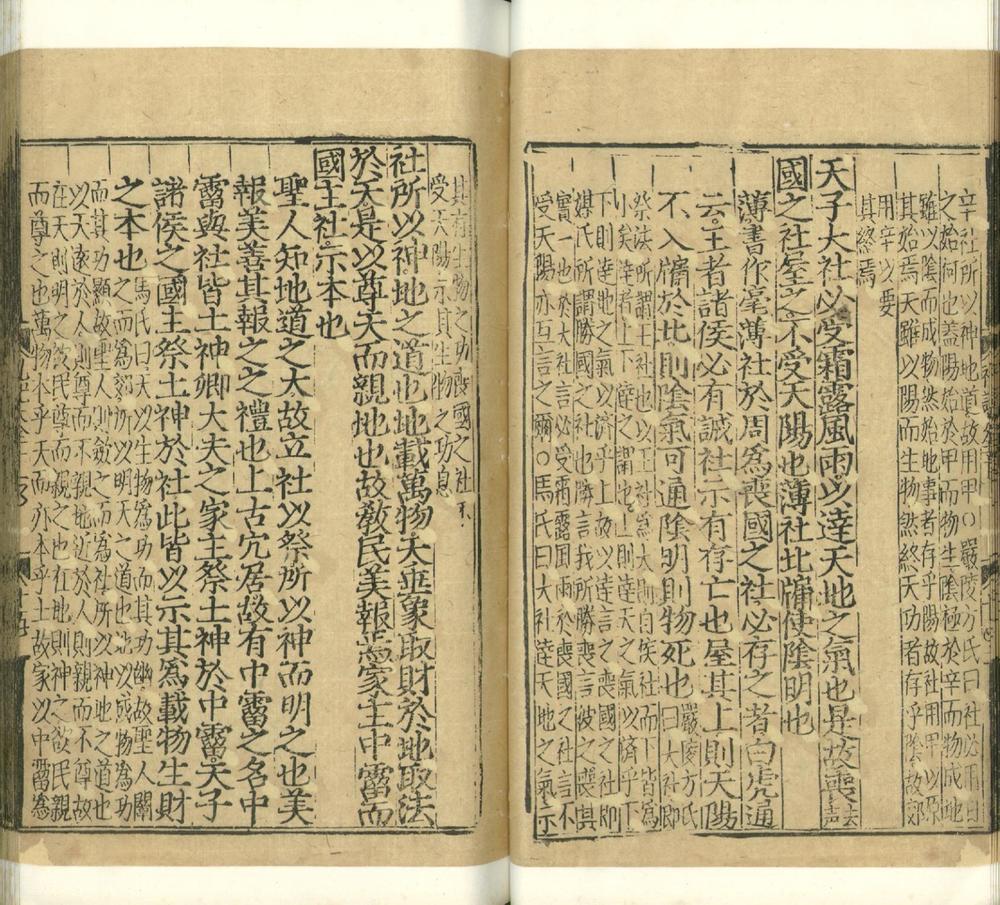 辛社所以神地道故用甲○嚴陵方氏曰社必用日
之始何也蓋陽始於甲而物生陰極於辛而物成地
雖以陰而成物然始地事者存乎陽故社用甲以原
其始焉天雖以陽而生物然終天功者存乎陰故郊
用辛以要
其終焉
天子大社必受霜露風雨以達天地之氣也是故喪去聲
國之社屋之不受天陽也薄社北牖使陰明也
薄書作亳薄社於周爲喪國之社必存之者白虎通
云王者諸侯必有誡社示有存亡也屋其上則天陽
不入牖於北則陰氣可通陰明則物死也嚴陵方氏曰大社即
祭法所謂王社也以王社爲大則自侯社而下皆爲
小矣達者上下辟之謂也上則達天之氣以濟乎下
下則達地之氣以濟乎上故以達言之喪國之社即
媒氏所謂勝國之社也隣言我所勝喪言彼之喪其
實一也於大社言必受霜露風雨於喪國之社言不
受天陽亦互言之爾○馬氏曰大社達天地之氣示
其存生物之功喪國之社不
受天陽示其生物之功息
社所以神地之道也地載萬物天垂象取財於地取法
於天是以尊天而親地也故敎民美報焉家主中霤而
國主社示本也
聖人知地道之大故立社以祭所以神而明之也美
報美善其報之之禮也上古穴居故有中霤之名中
霤與社皆土神卿大夫之家主祭土神於中霤天子
諸侯之國主祭土神於社此皆以示其爲載物生財
之本也馬氏曰天以生物爲功而其功幽故聖人闡
之而爲郊所以明天之道也地以成物爲功
而其功顯故聖人則斂之而爲社所以神地之道也
以天遠於人則尊而不親地近於人則親而不尊故
在天則明之欲民尊而親之也在地則神之欲民親
而尊之也萬物本乎天而亦本乎土故家以中霤爲